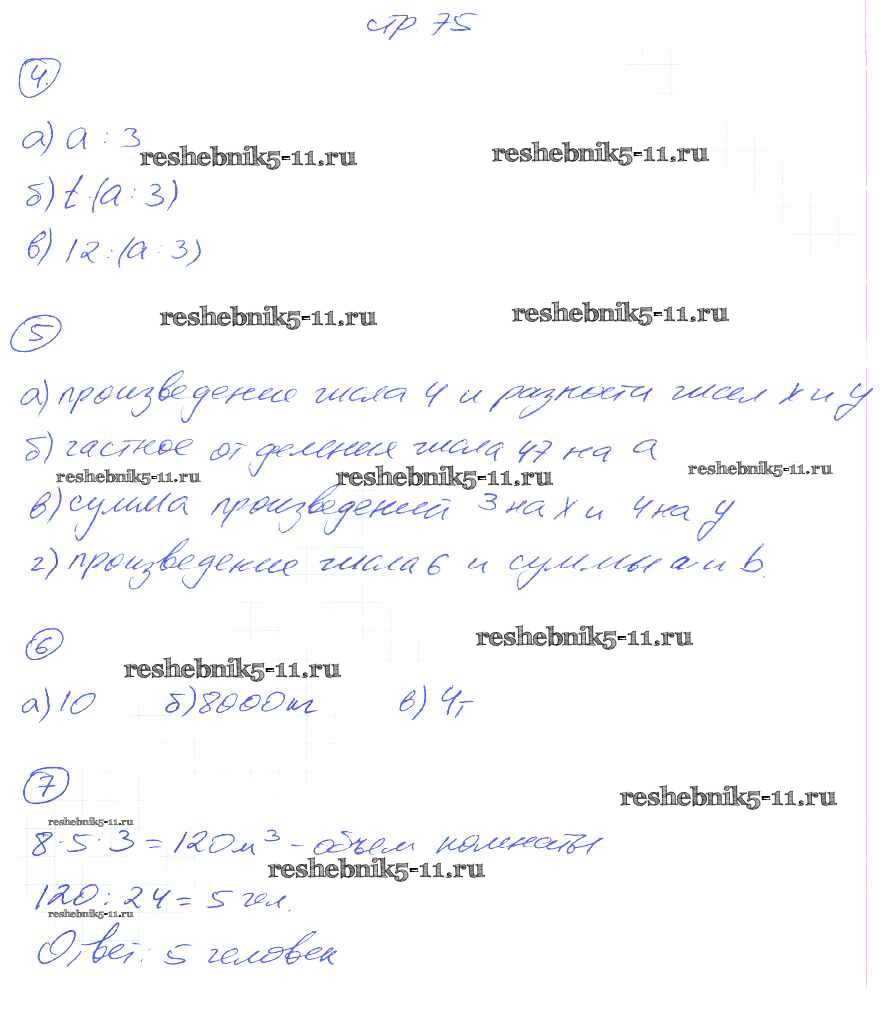 стр 75
4.
а) a : 3
reshebnik5-11.ru reshebnik5-11.ru
б) t·(a : 3)
в) 12:(a : 3)
reshebnik5-11.ru reshebnik5-11.ru
5
а) произведение числа 4 и разности чисел x и y
б) частное от деления числа 47 на a
reshebnik5-11.ru reshebnik5-11.ru reshebnik5-11.ru
в) сумма произведений 3 на x и 4 на y
г) произведение числа 6 и суммы a и b.
6
reshebnik5-11.ru reshebnik5-11.ru
а) 10 б) 8000 кг в) 4т
7
reshebnik5-11.ru
reshebnik5-11.ru
8·5·3 = 120 м³ - объем комнаты
reshebnik5-11.ru
120 : 24 = 5 чел.
reshebnik5-11.ru
Ответ: 5 человек